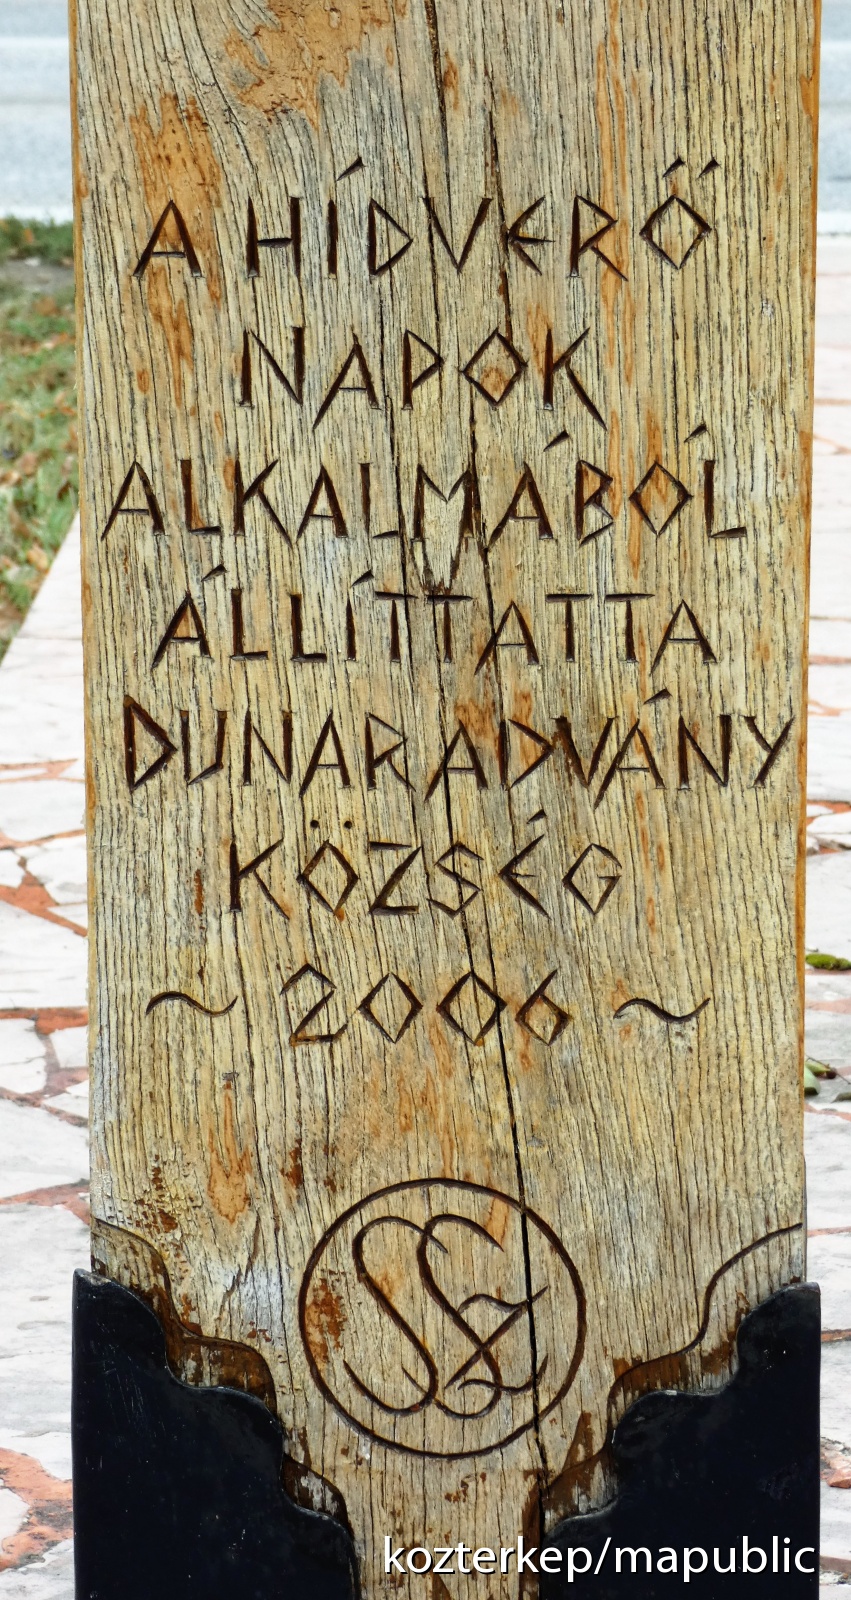 A HÍDVERŐ
NAPOK
ALKALMÁBÓL
ÁLLÍTTATTA
DUNARADVÁNY
KÖZSÉG
~ 2006 ~
SSZ
kozterkep/mapublic